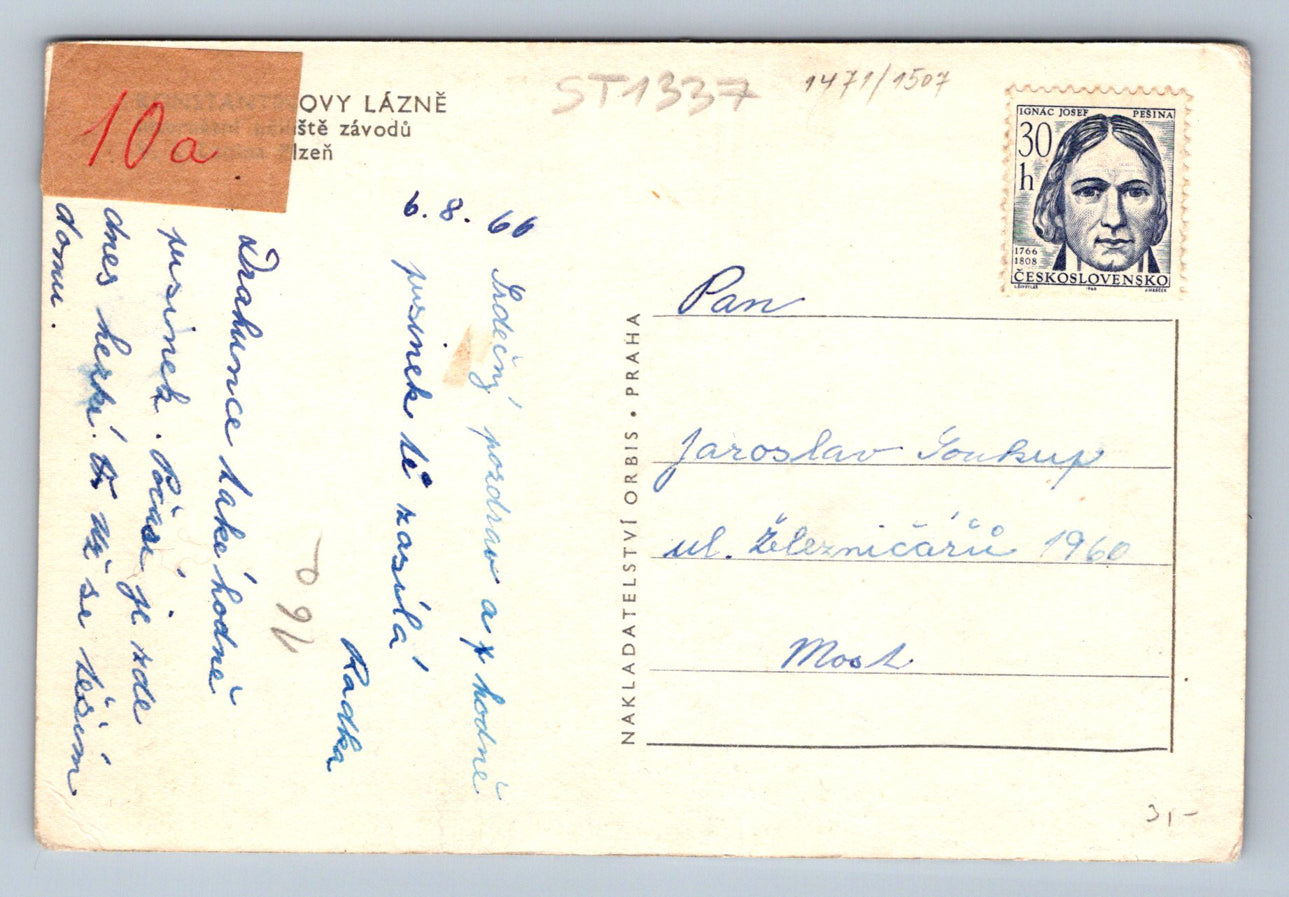 10a
OVY LÁZNĚ
iště závodů
lzeň
ST1337
1471/1507
IGNÁC JOSEF PEŠINA
30
h
1766
1808
ČESKOSLOVENSKO
6. 8. 66
Srdečný pozdrav a hodně
pusinek tě zasílá
Radka
Drahunce také hodně
pusinek. Počasí je zde
dnes hezké. Už se těším
domu.
NAKLADATELSTVÍ ORBIS • PRAHA
Pan
Jaroslav Soukup
ul. Železničářů 1960
Most
31-